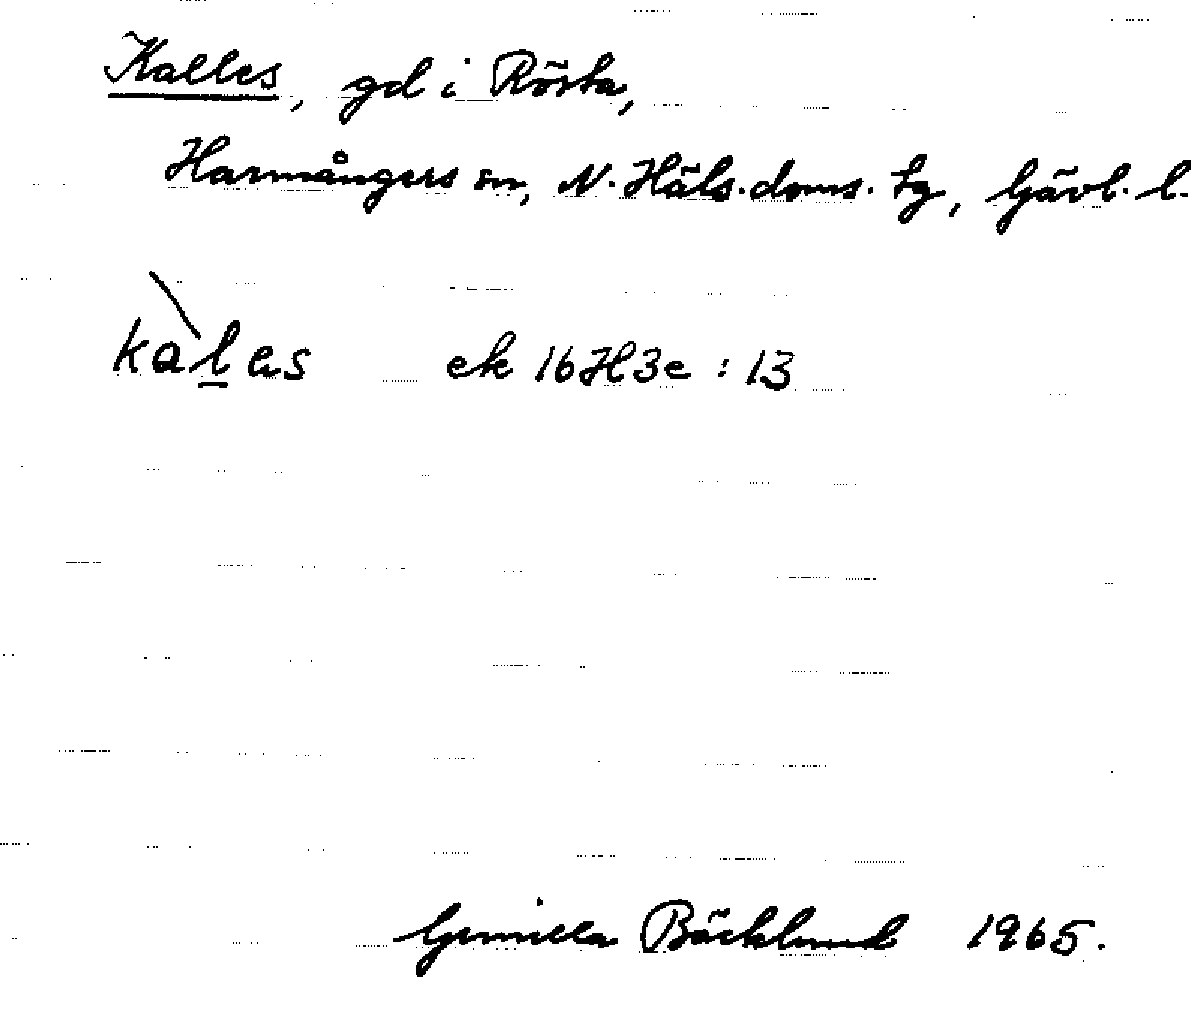 Kalles, gd i Rösta,
Harmångers sn, N. Häls. doms. tg, Gävl. l.
kàl̲es ek 16H3e : 13
Gunilla Bäcklund 1965.